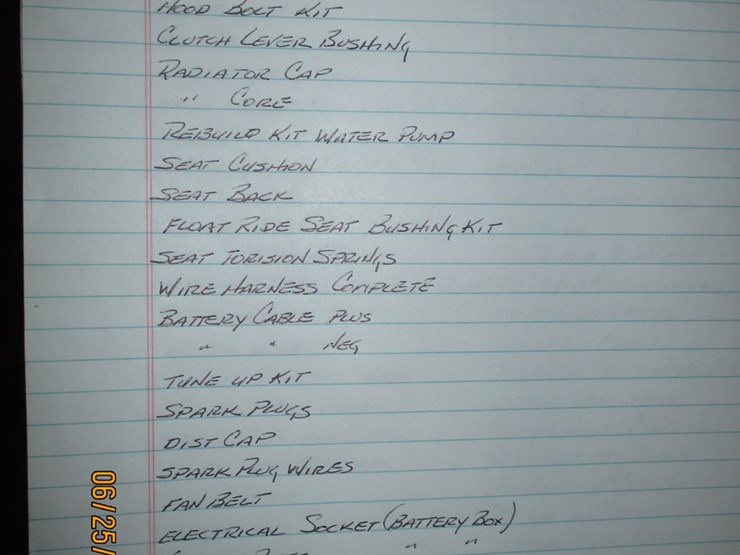 HOOD BOLT KIT
CLUTCH LEVER BUSHING
RADIATOR CAP
" CORE
REBUILD KIT WATER PUMP
SEAT CUSHION
SEAT BACK
FLOAT RIDE SEAT BUSHING KIT
SEAT TORISION SPRINGS
WIRE HARNESS COMPLETE
BATTERY CABLE PLUS
" " NEG
TUNE UP KIT
SPARK PLUGS
DIST CAP
SPARK PLUG WIRES
FAN BELT
ELECTRICAL SOCKET (BATTERY BOX)
" "
06/25/